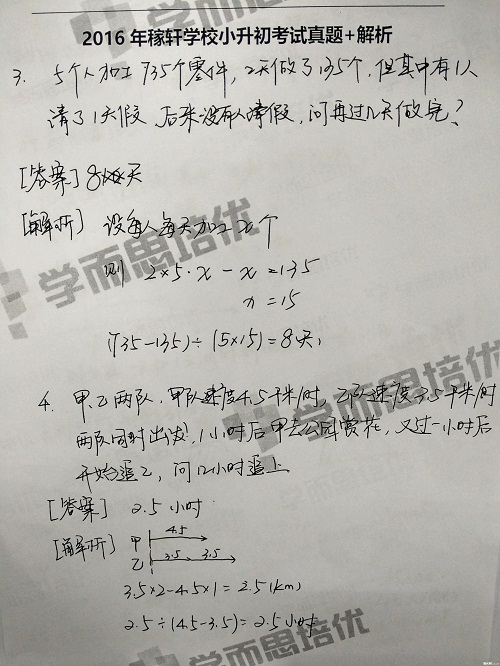 2016年稼轩学校小升初考试真题+解析
3. 5个人加工735个零件，2天做了135个，但其中有1人
请了1天假，后来没有人请假，问再过几天做完？
[答案] 8天
[解析] 设每人每天加工x个
则 2×5·x-x=135
x=15
(735-135)÷(5×15)=8天
4. 甲、乙两队，甲队速度4.5千米/时，乙队速度3.5千米/时
两队同时出发，1小时后甲去公园赏花，又过一小时后
开始追乙，问几小时追上
[答案] 2.5小时
[解析] 甲 4.5
乙 3.5 3.5
3.5×2-4.5×1=2.5(km)
2.5÷(4.5-3.5)=2.5小时
学而思培优
学而思培优
学而思培优
学而思培优